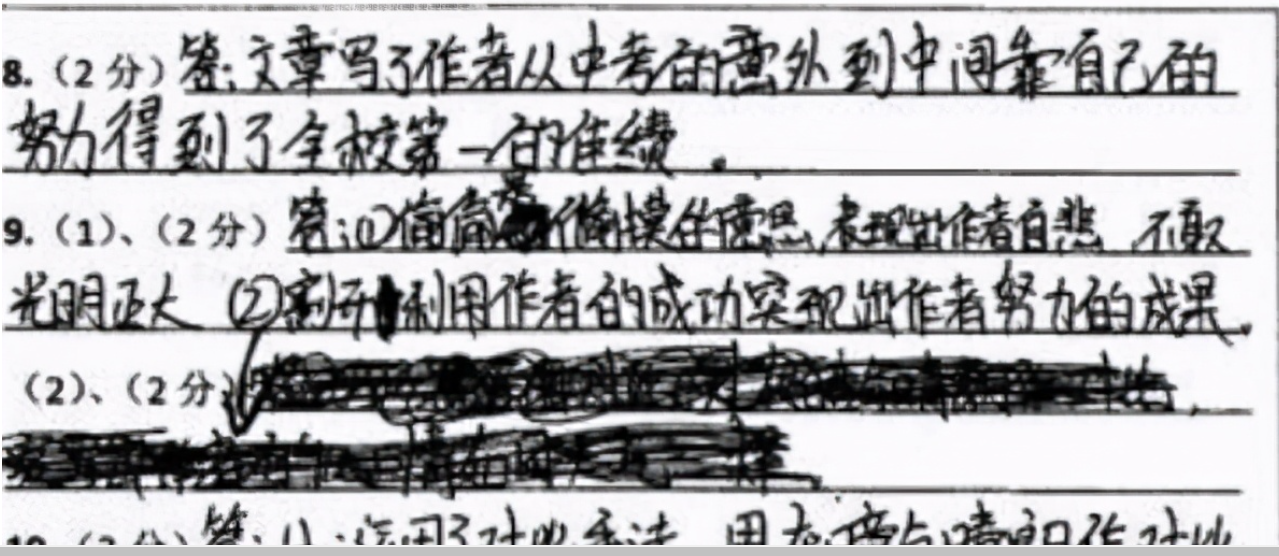 8.（2分）答：文章写了作者从中考的意外到中间靠自己的
努力得到了全校第一的佳绩。
9.（1）、（2分）答：①偷偷是偷摸的意思，表现出作者自悲 不取
光明正大 ②利用作者的成功突现出作者努力的成果。
（2）、（2分）
答：运用了对比手法